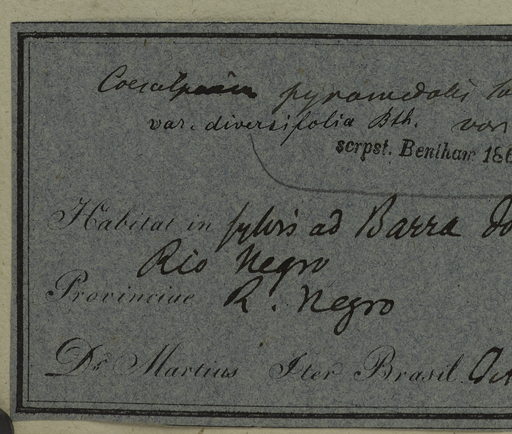 Caesalpinia pyramidalis
var. diversifolia Bth. var
scrpst. Bentham 186
Habitat in sylvis ad Barra do
Rio Negro
Provinciae R. Negro
Dr. Martius Iter Brasil. Oct